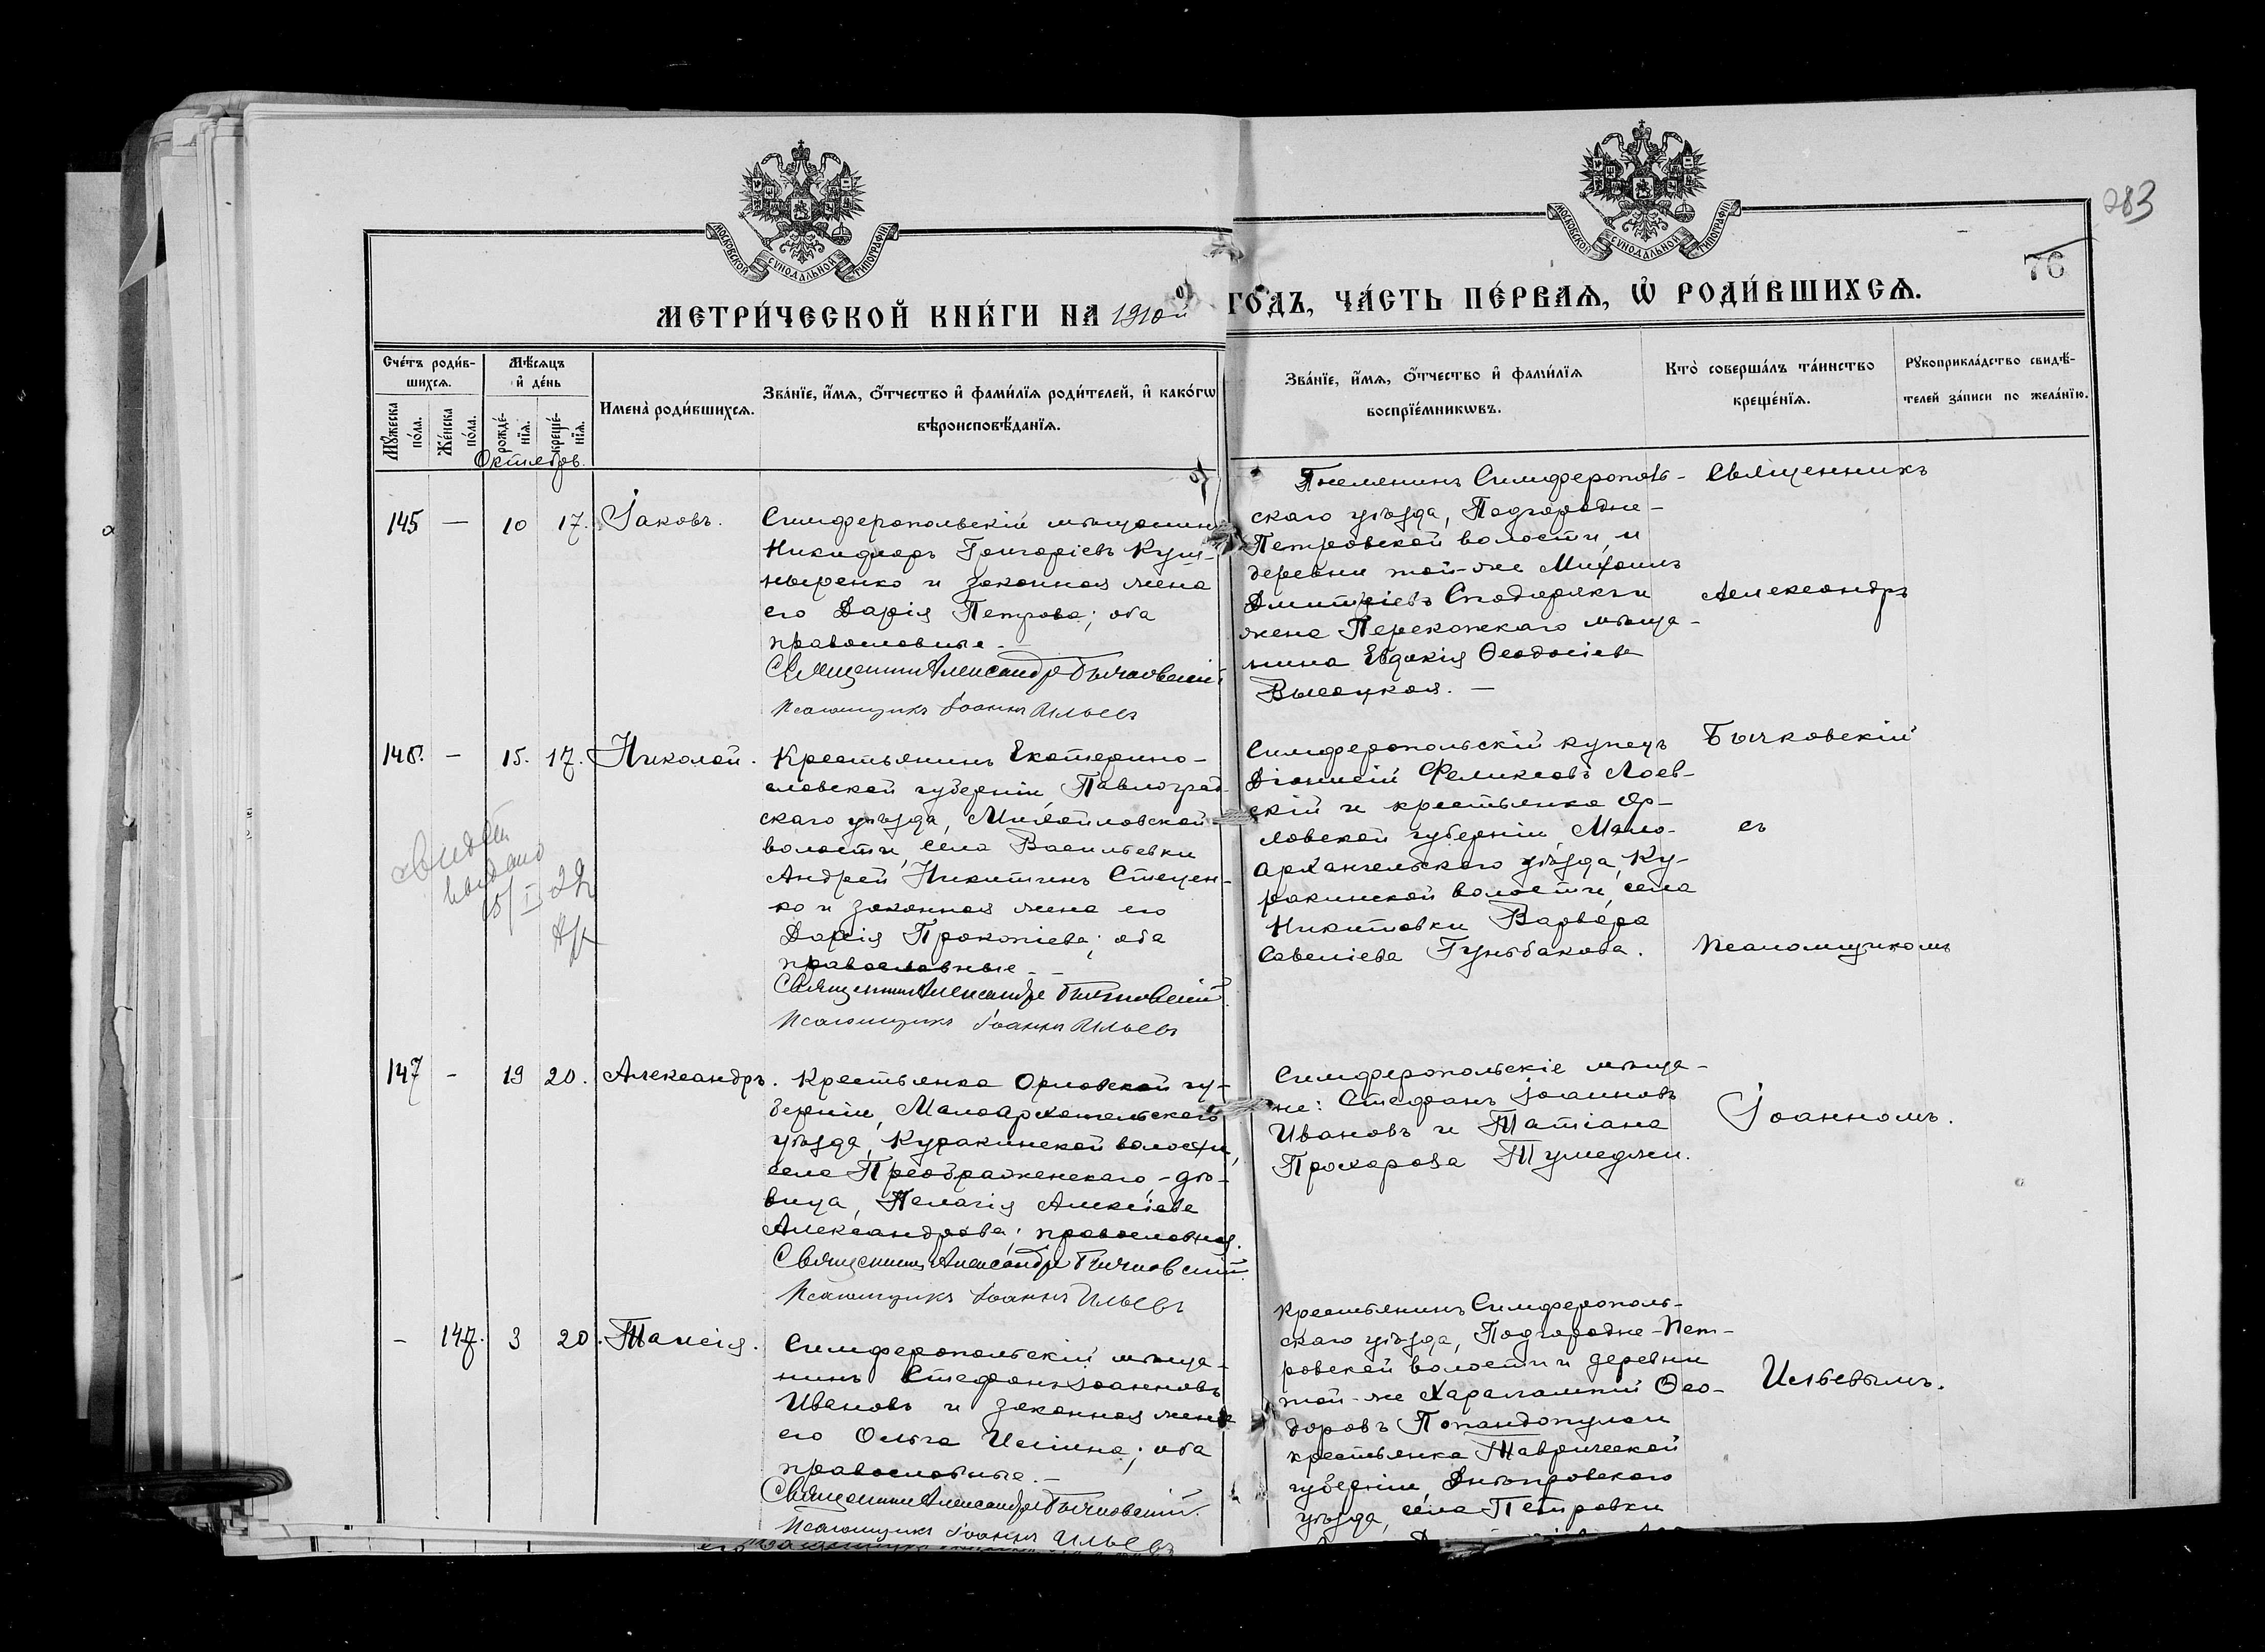 283
76
МОСКОВСКОЙ СУНОДАЛЬНОЙ ТИПОГРАФІИ
МОСКОВСКОЙ СУНОДАЛЬНОЙ ТИПОГРАФІИ
МЕТРИ́ЧЕСКОЙ КНИ́ГИ НА 1910й ГО́ДЪ, ЧА́СТЬ ПЕ́РВАЯ, Ѡ҆ РОДИ́ВШИХСЯ.
Сче́тъ роди́в-
шихся.
Мꙋ́жеска
по́ла.
Же́нска
по́ла.
Мѣ́сяцъ
и҆ де́нь
рожде́-
нїя.
креще́-
нїя.
Имена̀ роди́вшихся.
Зва́нїе, и҆́мя, ѻ҆́тчество и҆ фами́лїя роди́телей, и҆ како́гѡ
вѣроисповѣ́данїя.
Зва́нїе, и҆́мя, ѻ҆́тчество и҆ фами́лїя
воспрїе́мникѡвъ.
Кто̀ соверша́лъ та́инство
креще́нїя.
Рꙋкоприкла́дство свидѣ́-
телей за́писи по жела́нїю.
Октябрь.
145 — 10 17. Іаковъ.
Симферопольскій мѣщанинъ
Никифоръ Григорієвъ Куш-
ныренко и законная жена
его Дарія Петрова; оба
православные. —
Священникъ Александръ Бычковскій
Псаломщикъ Іоаннъ Ильевъ
Симферополь-
скаго уѣзда, Подгородне-
Петровской волости, и
деревни той-же Михаилъ
Дмитріевъ и
жена Перекопскаго мѣща-
нина Евдокія Ѳеодосіева
Высоцкая. —
146. — 15. 17. Николай.
Крестьянинъ Екатерино-
славской губерніи, Павлоград-
скаго уѣзда, Михайловской
волости, села Васильевки
Андрей Никитинъ Стецен-
ко и законная жена его
Дарія Прокопіева; оба
православные. —
Священникъ Александръ Бычковскій
Псаломщикъ Іоаннъ Ильевъ
выдано
Симферопольскій купецъ
Діонисій Феликсовъ Лоев-
скій и крестьянка Ор-
ловской губерніи, Мало-
архангельскаго уѣзда, Ку-
ракинской волости, села
Никитовки Варвара
Савеліева Гунькова.
147 - 19 20. Александръ.
Крестьянка Орловской гу-
берніи, Малоархангельскаго
уѣзда, Куракинской волости,
села Преображенскаго, - дѣ-
вица, Пелагія Алексіева
Александрова; православная.
Священникъ Александръ Бычковскій
Псаломщикъ Іоаннъ Ильевъ
Симферопольскіе мѣща-
не: Стефанъ Іоанновъ
Ивановъ и Татіана
Прохорова
- 147. 3 20. Таисія.
Симферопольскій мѣща-
нинъ Стефанъ Іоанновъ
Ивановъ и законная жена
его Ольга Иліина; оба
православные. —
Священникъ Александръ Бычковскій
Псаломщикъ Іоаннъ Ильевъ
Крестьянинъ Симферополь-
скаго уѣзда, Подгородне-Пет-
ровской волости и деревни
той-же Харалампий Ѳео-
доровъ Попандопуло и
крестьянка Таврической
губерніи, Днѣпровскаго
уѣзда, села Петровки
Священникъ
Александръ
Бычковскій
съ
псаломщикомъ
Іоанномъ.
Ильевымъ.